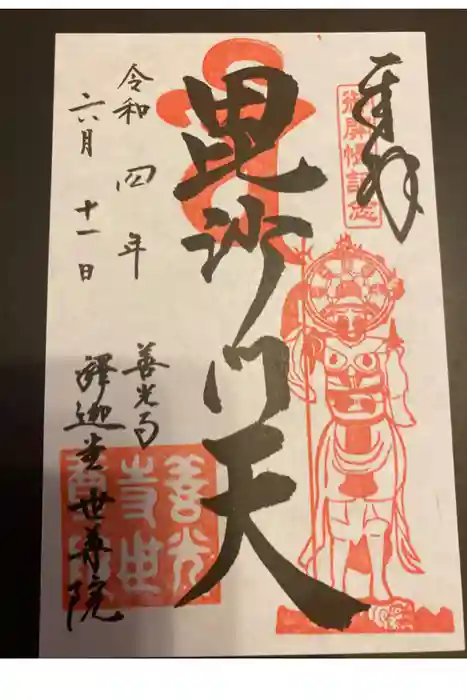 奉拝
御開帳記念
毘沙門天
令和四年
六月十一日
善光寺
釋迦堂世尊院
善光
寺世